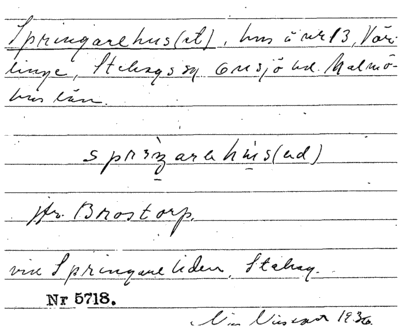 Springarehus(et), hus å nr 13, Väri-
linge, Stehags sn Onsjö hd. Malmö-
hus län.
sprinarehus(ed)
Jfr. Brostorp.
vid Springareliden, Stehag.
Nr 5718.
1936